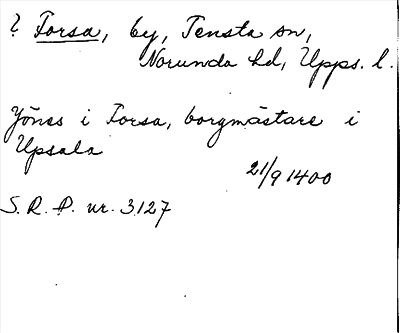 ? Forsa, by, Tensta sn,
Norunda hd, Upps. l.
Jönes i Forsa, borgmästare i
Upsala
21/9 1400
S. R. P. nr. 3127